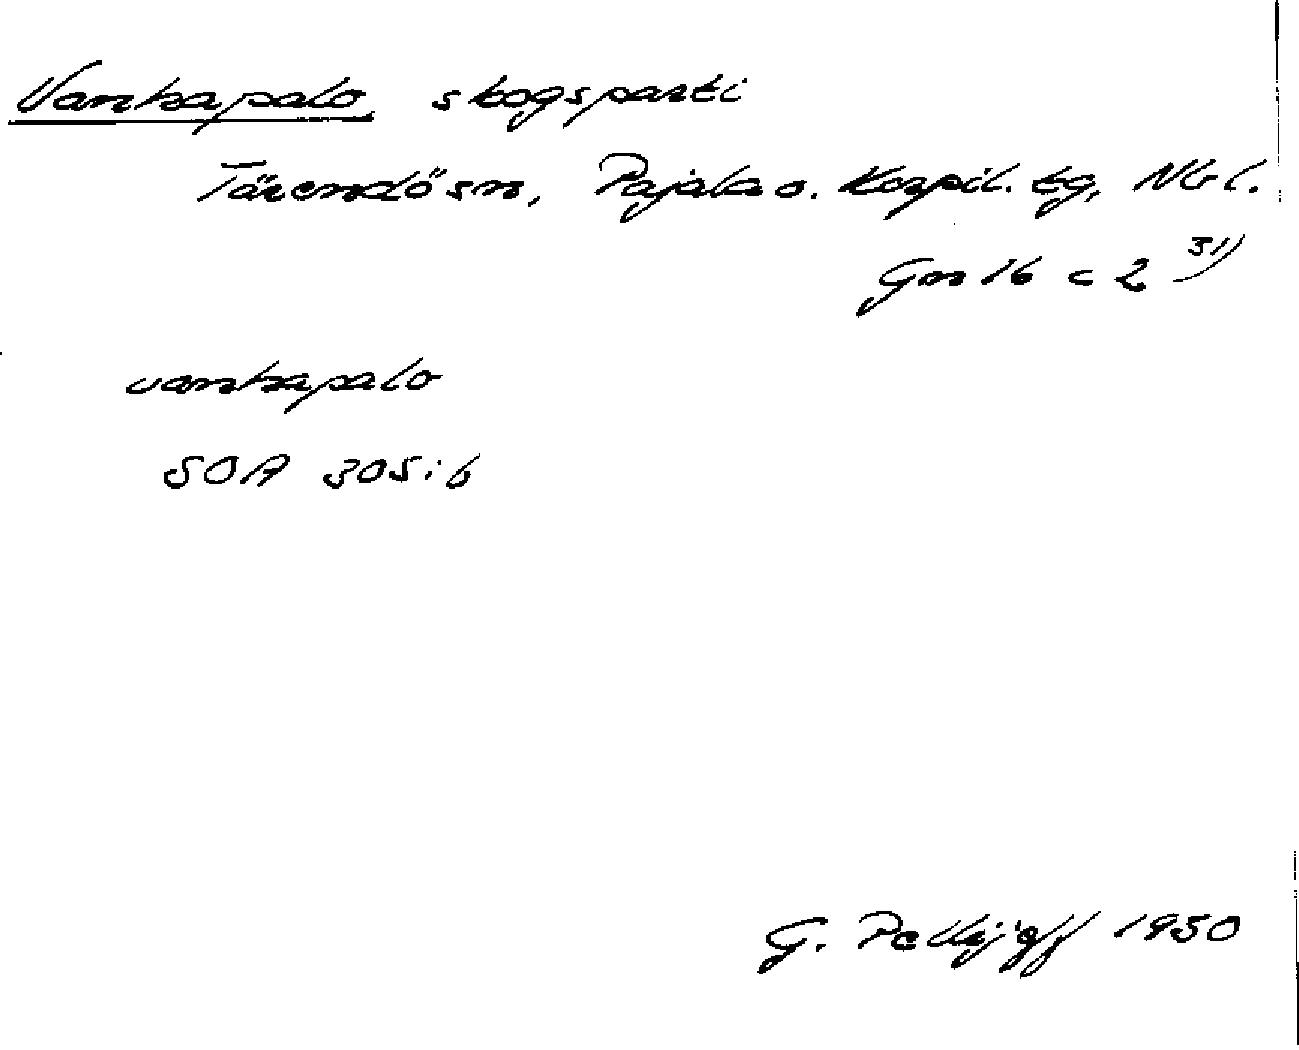 Vanhapalo skogsparti
Tärendö sn, Pajala o. Korpil. tg, Nb l.
Gn 16 c 2 31)
vanhapalo
SOA 305:6
G. Pellijeff 1950